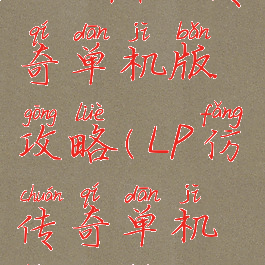 qí dān jī bǎn
奇单机版
gōng lüè fǎng
攻略(LP仿
chuán qí dān jī
传奇单机